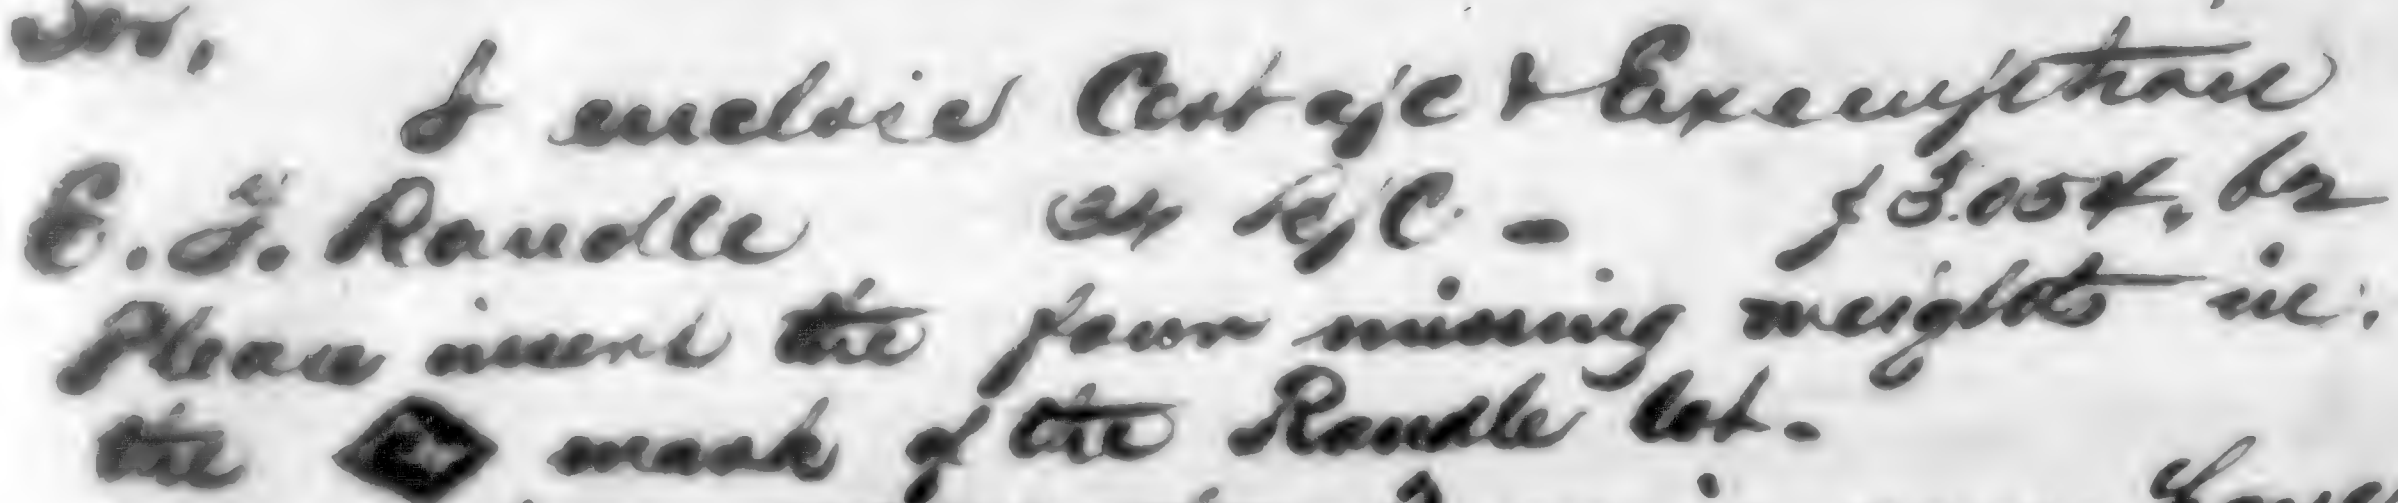 Sir,
I enclose Cost a/c & Exemption
E. F. Randle 34 B/C. - £3.054, bz
Please insert the four missing weights in:
the mark of the Randle lot.